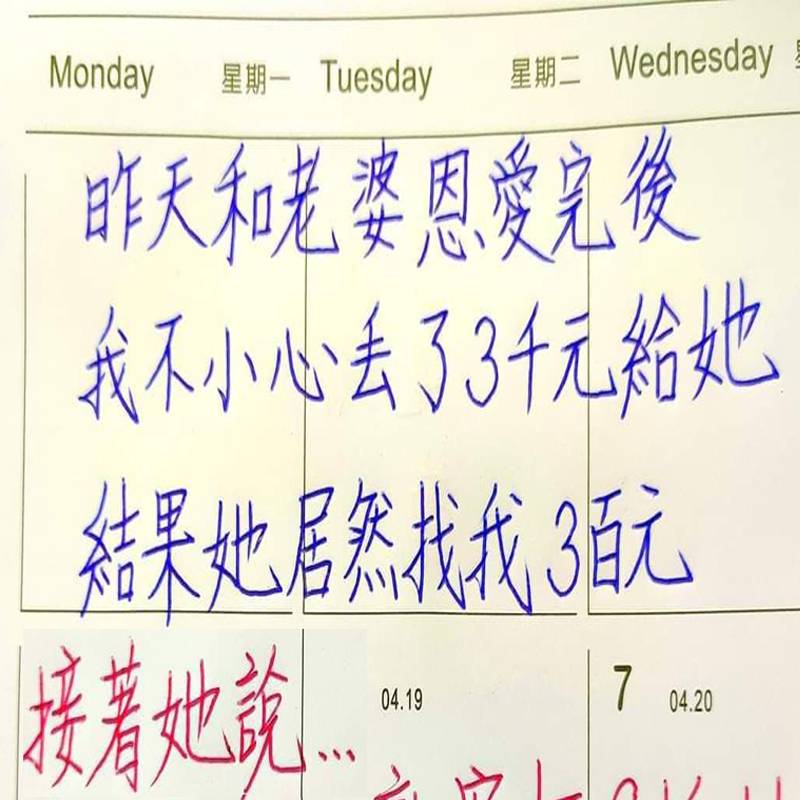 Monday 星期一 Tuesday 星期二 Wednesday
昨天和老婆恩愛完後
我不小心丟了3千元給她
結果她居然找我3百元
接著她說...
04.19 7 04.20